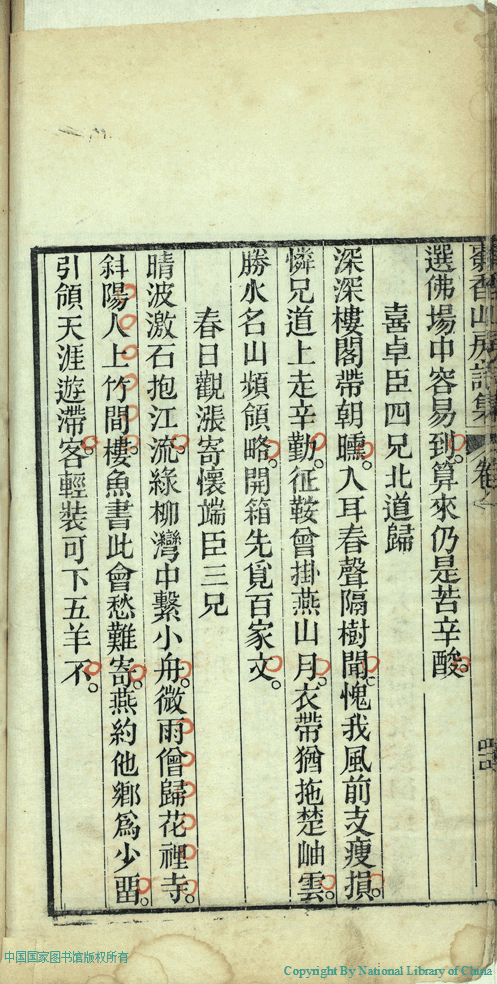 選佛場中容易到。算來仍是苦辛酸。
喜卓臣四兄北道歸
深深樓閣帶朝曛。入耳春聲隔樹聞。愧我風前支瘦損。
憐兄道上走辛勤。征鞍曾掛燕山月。衣帶猶拖楚岫雲。
勝水名山頻領略。開箱先覓百家文。
春日觀漲寄懷端臣三兄
晴波激石抱江流。綠柳灣中繫小舟。微雨僧歸花裡寺。
斜陽人上竹間樓。魚書此會愁難寄。燕約他鄉爲少畱。
引領天涯遊滯客。輕裝可下五羊不。
中国国家图书馆版权所有
Copyright By National Library of China